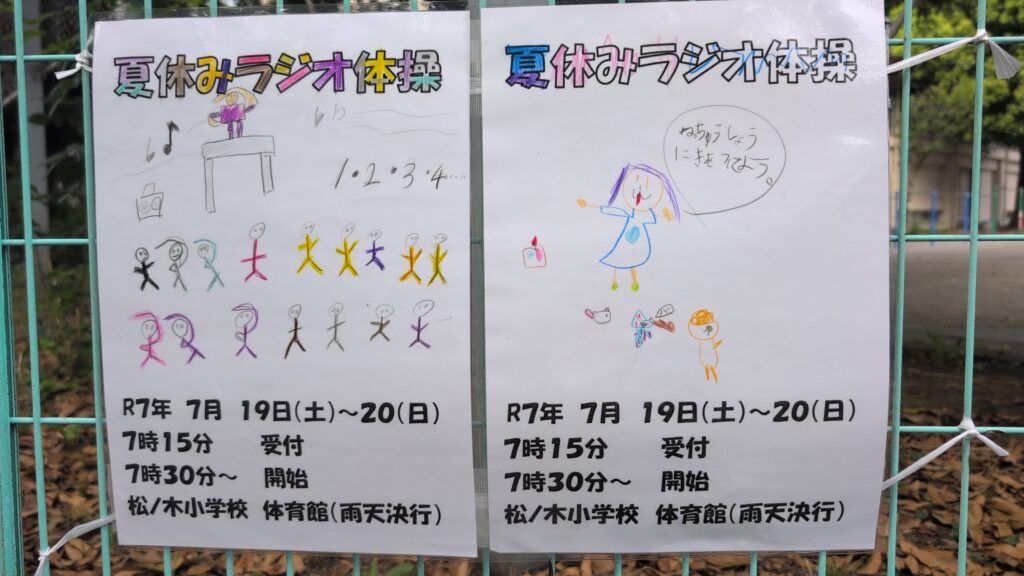 夏休みラジオ体操
1・2・3・4・・・・
R7年 7月 19日(土)～20(日)
7時15分 受付
7時30分～ 開始
松ノ木小学校 体育館(雨天決行)
夏休みラジオ体操
ねちゅうしょう
に気をつけてよう。
R7年 7月 19日(土)～20(日)
7時15分 受付
7時30分～ 開始
松ノ木小学校 体育館(雨天決行)